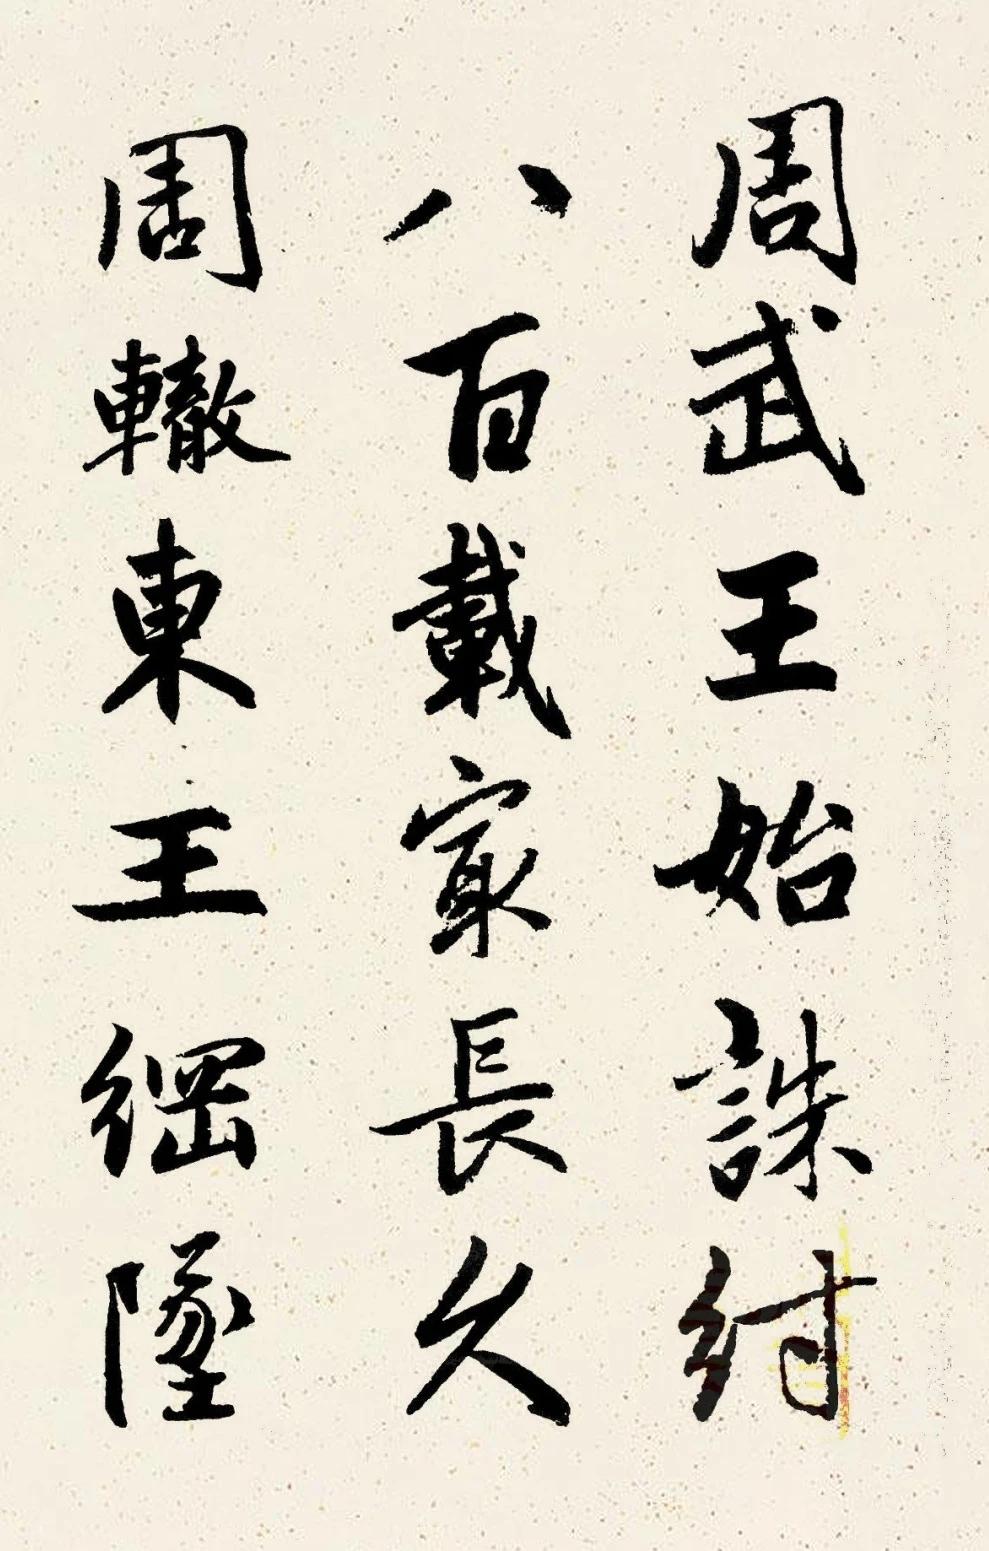 周武王始誅紂
八百載冣長久
周轍東王綱墜